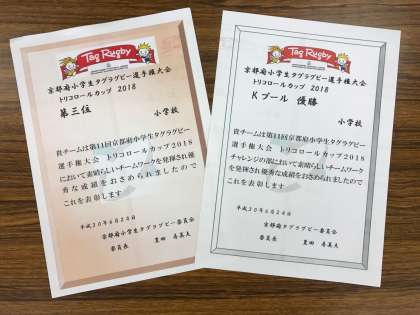 Tag Rugby
京都府小学生タグラグビー選手権大会
トリコロールカップ 2018
第三位
小学校
貴チームは第11回京都府小学生タグラグビー
選手権大会 トリコロールカップ2018
において素晴らしいチームワークを発揮され優
秀な成績をおさめられましたので
これを表彰します
平成30年6月24日
京都府小学生タグラグビー委員会
委員長 豊田
Tag Rugby
京都府小学生タグラグビー選手権大会
トリコロールカップ 2018
Kプール 優勝
小学校
貴チームは第11回京都府小学生タグラグビー
選手権大会 トリコロールカップ2018
チャレンジの部において素晴らしいチームワーク
を発揮され優秀な成績をおさめられましたので
これを表彰します
平成30年6月24日
京都府小学生タグラグビー委員会
委員長 豊田